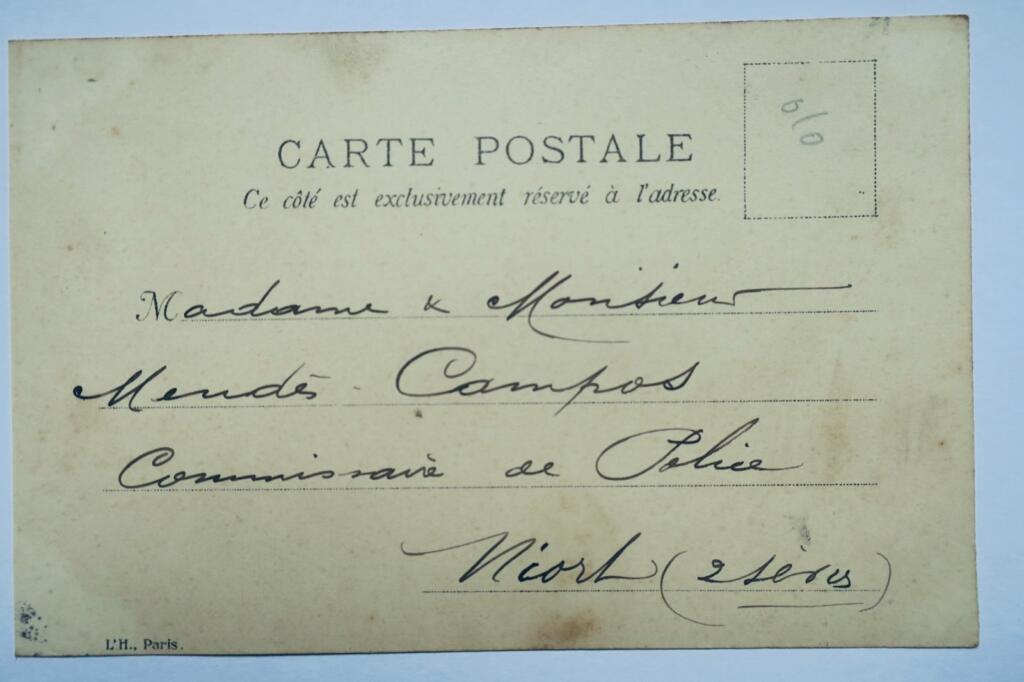 CARTE POSTALE
Ce côté est exclusivement réservé à l'adresse.
Madame & Monsieur
Mendès-Campos
Commissaire de Police
Niort (2 Sèvres)
L'H., Paris.